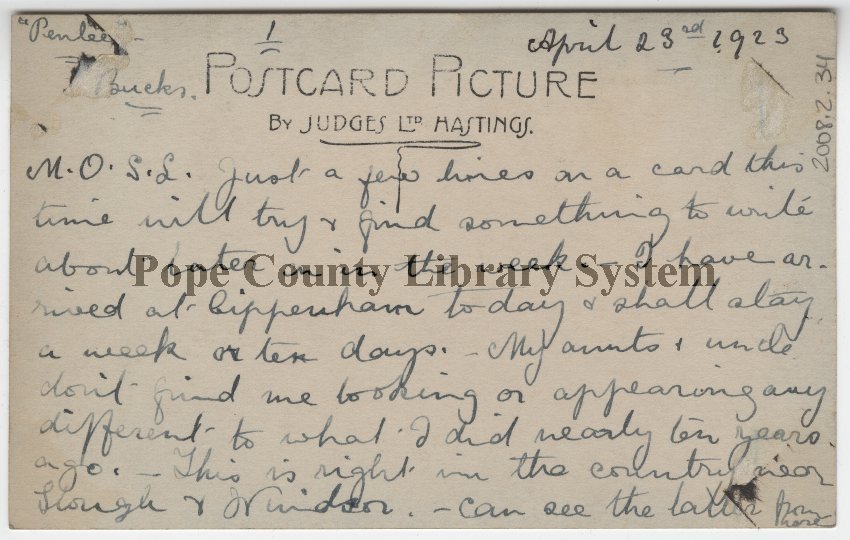 "Penlee"
Bucks.
1
April 23rd 1923
POSTCARD PICTURE
BY JUDGES LTD HASTINGS.
2008.2.34
M.O.S.L. Just a few lines on a card this
time will try & find something to write
about later on in the week. - I have ar-
rived at Cippenham today & shall stay
a week or ten days. - My aunts & uncle
don't find me looking or appearing any
different to what I did nearly ten years
ago. - This is right in the country near
Slough & Windsor. - can see the latter from
here
Pope County Library System